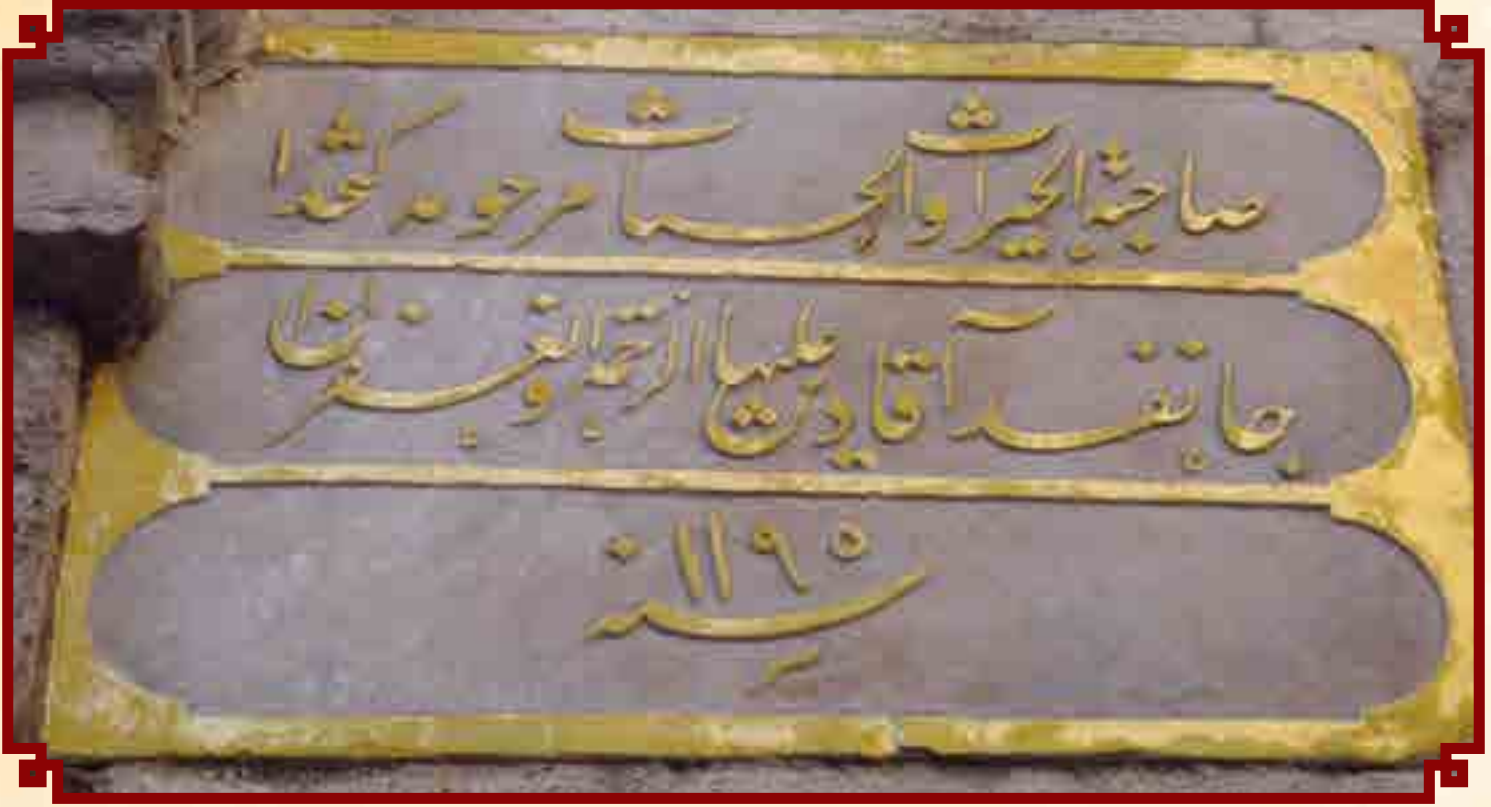 صاحبة الخيرات والحسنات مرحومه كتخدا
جانفدآ قادين عليها الرحمة والغفران
سنه ١١٩٥